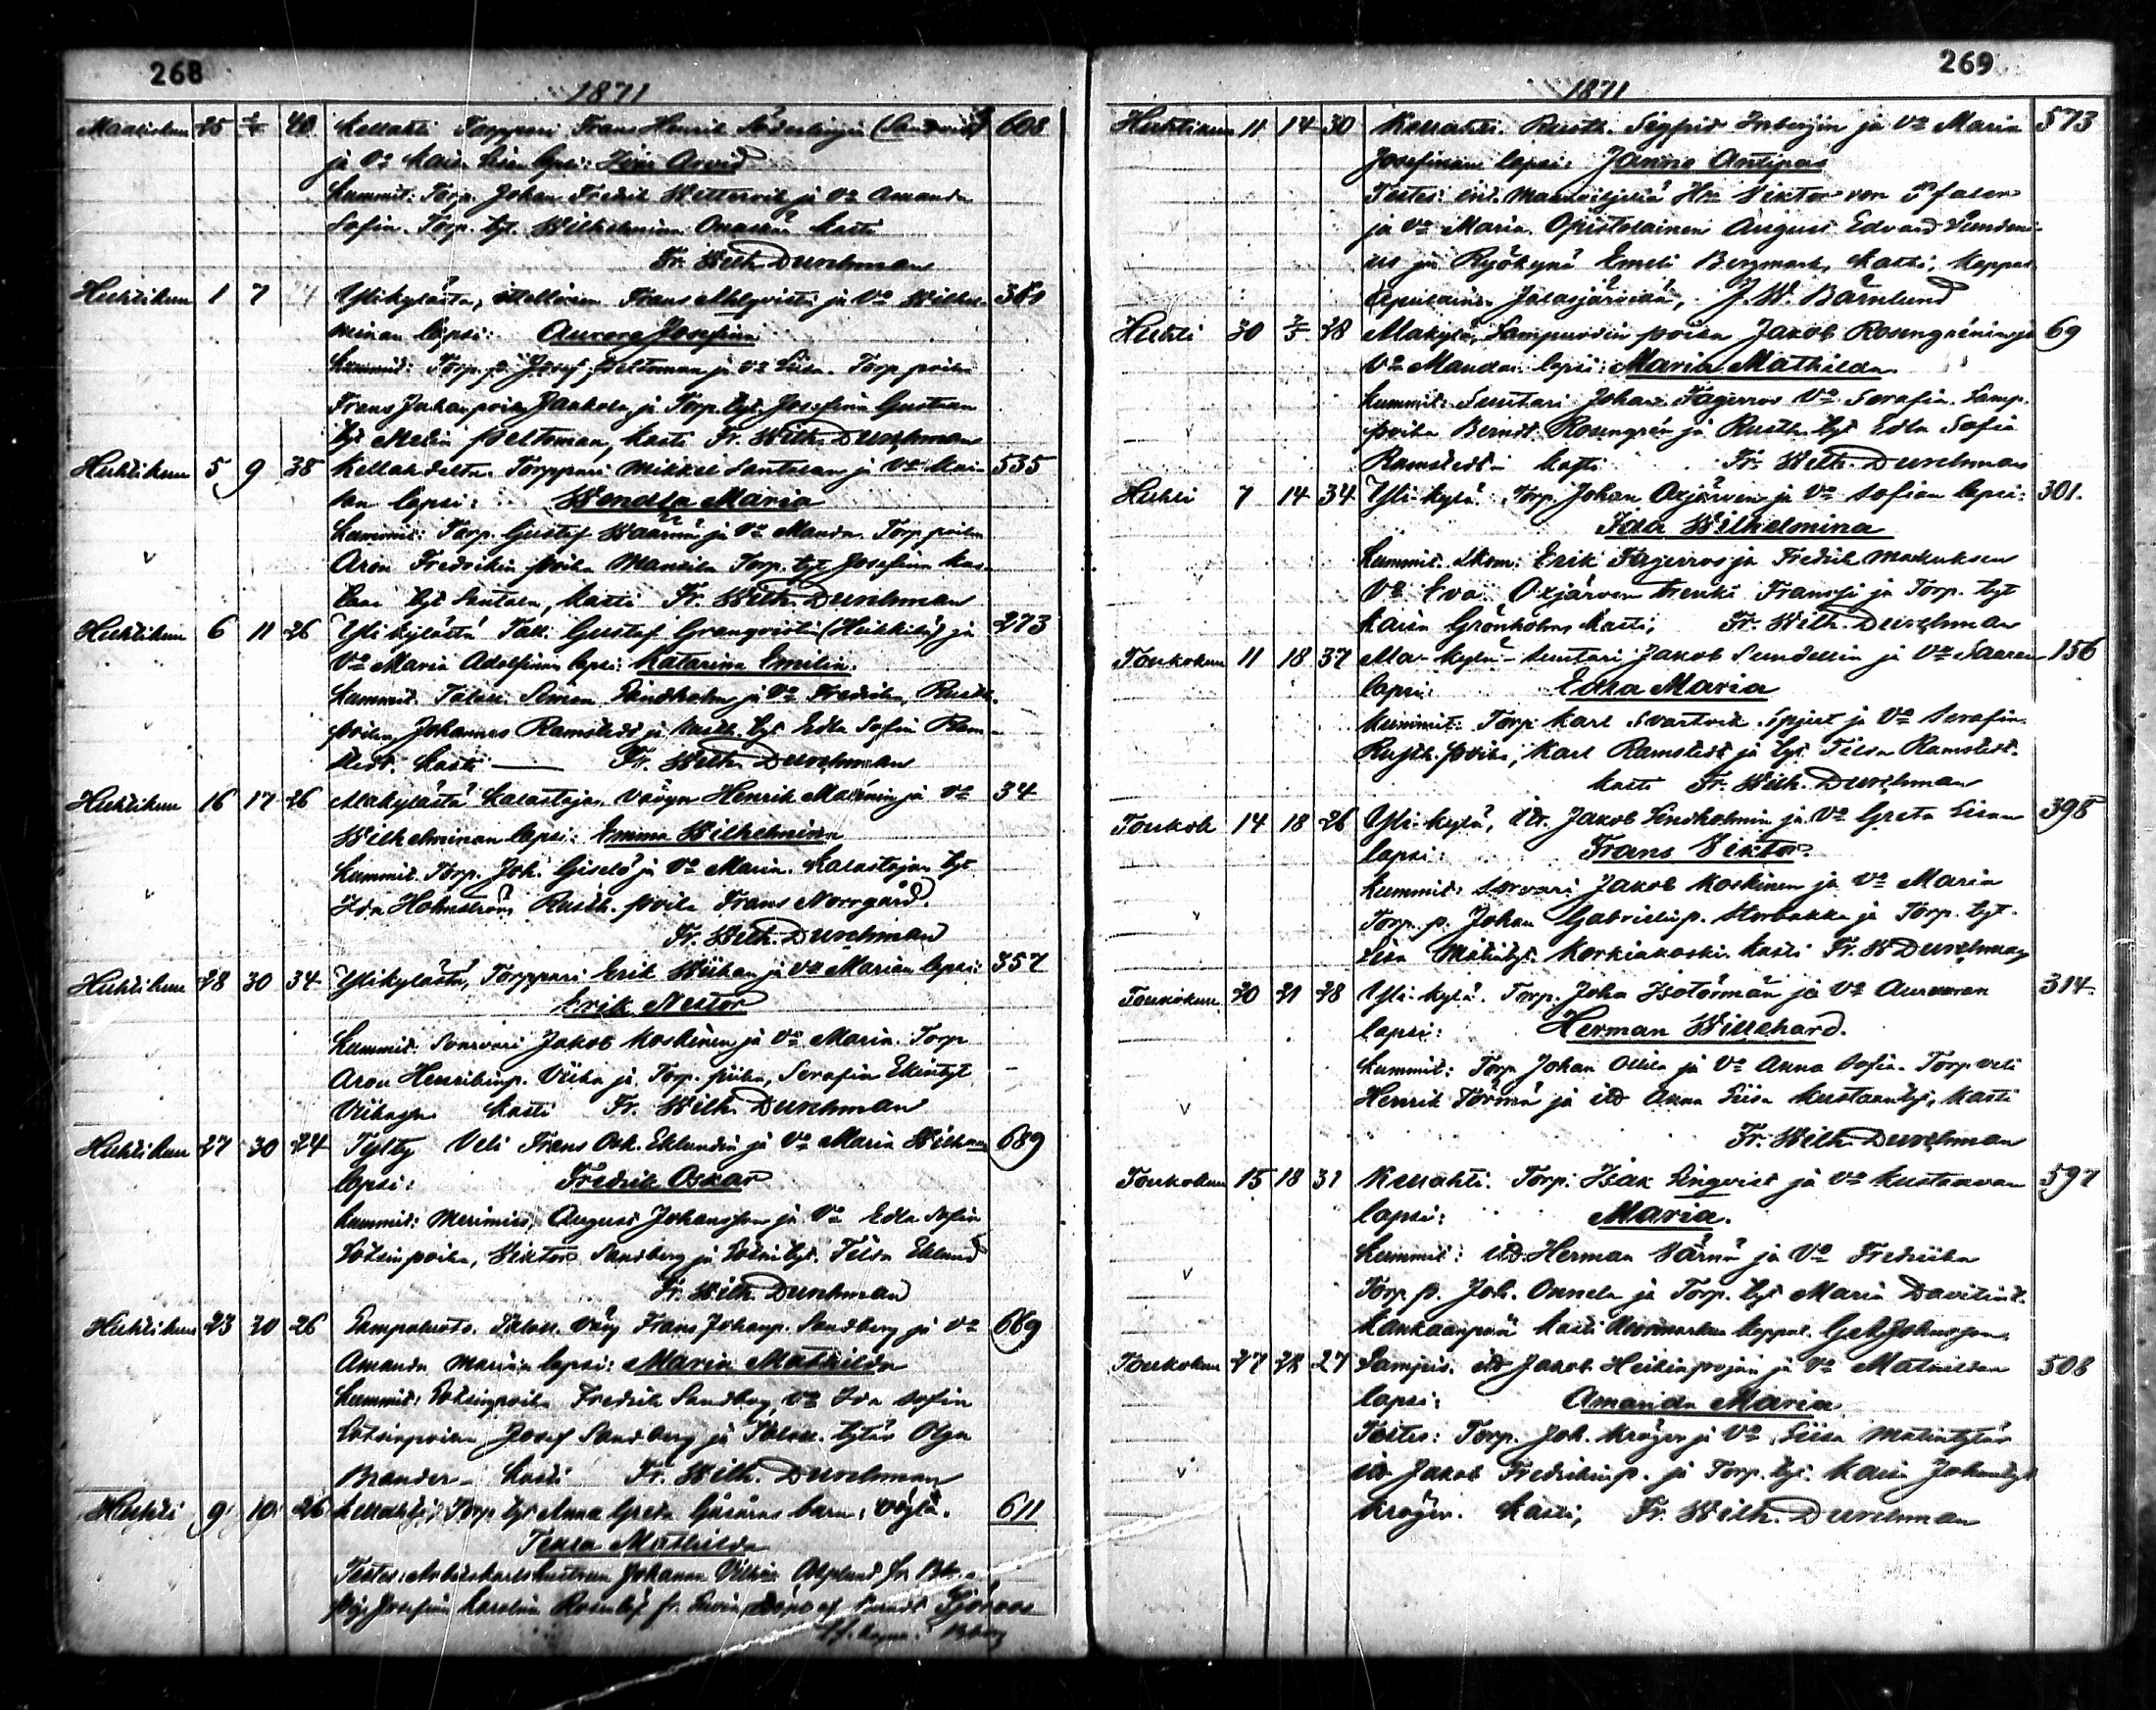 268
1871
Maaliskuu 25 2/4 40 Kellahti Torppari Frans Henrik Söderlingin 608
ja Vo Kaisa Liisan lapsi: Ivar Arvid
Kummit: Torp. Johan Fredrik Wettervik ja Vo Amanda
Sofia. Torp. tyt. Wilhelmina kasti
Fr. Wilh. Durchman
Huhtikuu 1 7 Ylikylästä, Frans Ahlqvistin ja Vo Wilhel- 381
minan lapsi: Aurora Josefina
Kummit: Torp. p. Josef Peltoman ja Vo Liisa. Torp. poika
Frans Juhanpoika Jaakola ja Torp. tyt. Josefina Gustava
tyt Peltoman, kasti Fr. Wilh. Durchman
Huhtikuu 5 9 38 Kellahdelta Torppari Mikkel Santalan ja Vo Mai- 535
jan lapsi: Wendla Maria
Kummit: Torp. Gustaf ja Vo Manda. Torp. poika
Aron Fredrikin poika Torp. tyt Josefina
tyt Santala, kasti Fr. Wilh. Durchman
Huhtikuu 6 11 26 Ylikylästä Gustaf Granqvistin (Heikkilä) ja 273
Vo Maria Adolfinan lapsi: Katarina Emilia.
Kummit. Talon. Simon Lindholm ja Vo Fredrika, Rusth.
poika, Johannes Ramstedt ja Rusth. tyt Edla Sofia Ram-
stedt. kasti — Fr. Wilh. Durchman
Huhtikuu 16 17 26 Alakylästä Kalastajan vävyn Henrik ja Vo 34
Wilhelminan lapsi: Emma Wilhelmina
Kummit. Torp. Joh. Giselö ja Vo Maria. Kalastajan tyt
Ida Holmström, Rusth. poika Frans Norrgård.
Fr. Wilh. Durchman
Huhtikuu 28 30 34 Ylikylästä, Torppari Erik Wiikan ja Vo Marian lapsi: 357
Erik Nestor
Kummit: Sorvari Jakob Koskinen ja Vo Maria. Torp
Aron Henrikinp. Viika ja Torp. piika, Serafia Erkintyt
Viikasen kasti Fr. Wilh. Durchman
Huhtikuu 27 30 24 Veli Frans Osk. Eklundin ja Vo Maria Wilhan 689
lapsi: Fredrik Oskar
Kummit: Merimies, August Johansson ja Vo Edla Sofia
Lötsinpoika, Viktor Sandberg ja Lotsintyt. Tilda Eklund
Fr. Wilh. Durchman
Huhtikuu 23 30 26 Lampaluoto. Talon. Vävy Frans Johanp. Sandberg ja Vo 669
Amanda Marian lapsi: Maria Mathilda
Kummit: Lotsinpoika Fredrik Sandberg, Vo Ida Sofia
Lotsinpoika Josef Sandberg ja Talon. tytär Olga
Brander — kasti Fr. Wilh. Durchman
Huhti 9 10 26 Kellahti; Torp tyt Anna Greta barn, 611
Mathilda
Testes: Johanna
Josefina Karolina
269
1871
Huhtikuu 11 14 30 Kellahti. Rusth. Sigfrid Inbergin ja Vo Maria 573
Josefinan lapsi: Janne Antipas
Testes: Hra Viktor von Pfaler
ja Vo Maria. Opistolainen August Edvard
us ja Ryökynä Emeli Bergmark, kasti; Kappal.
apulainen Jalasjärvellä, J. W. Bärnlund
Huhti 30 2/5 28 Alakylä, Lampuodin poika Jakob Rosengrénin ja 69
Vo Mandan lapsi: Maria Mathilda
Kummit: Suutari Johan Fagerros Vo Serafia. Lamp.
poika Berndt Rosengrén ja Rusth. tyt Edla Sofia
Ramstedt — kasti Fr. Wilh. Durchman
Huhti 7 14 34 Yli-kylä. Torp. Johan Oxjärven ja Vo Sofian lapsi: 301.
Ida Wilhelmina
Kummit. Erik Fagerros ja Fredrik Markuksen
Vo Eva. Oxjärven trenki Fransi ja Torp. tyt
Kaisa Grönholms kasti; Fr. Wilh. Durchman
Toukokuu 11 18 37 Ala-kylä — Suutari Jakob Sundellin ja Vo Saaran 156
lapsi: Edla Maria
Kummit: Torp. Karl Svartvik Spjut ja Vo Serafia.
Rusth. poika, Karl Ramstedt ja tyt. Tilda Ramstedt.
kasti Fr. Wilh. Durchman
Toukok 14 18 26 Yli-kylä, itr. Jakob Lindholmin ja Vo Greta Liisan 398
lapsi: Frans Viktor.
Kummit: Sorvari Jakob Koskinen ja Vo Maria
Torp. p. Johan Gabrielinp. Storbakka ja Torp. tyt.
Liisa Matintyt. Korkiakoski. kasti Fr. W Durchman
Toukokuu 20 21 28 Yli-kylä. Torp. Joha Isotörmän ja Vo Auroran 314
lapsi: Herman Willehard.
Kummit: Torp Johan Ollila ja Vo Anna Sofia. Torp veli
Henrik Törmä ja itd Anna Liisa Kustaantyt, kasti
Fr. Wilh. Durchman
Toukokuu 15 18 31 Kellahti. Torp. Isak Linqvist ja Vo Kustaavan 597
lapsi: Maria.
Kummit: itd. Herman Värnä ja Vo Fredriika
Torp. p. Joh. Onnela ja Torp. tyt Maria Davitint.
Kankaanpää kasti Noormarkun kappal.
Toukokuu 27 28 27 itd Jakob Heikinpojan ja Vo Mathildan 508
lapsi: Amanda Maria
Testes: Torp. Joh. Kröger ja Vo Liisa Matintytär
itd Jakob Fredrikinp. ja Torp. tyt. Kaisa Johantyt
Kröger. kasti; Fr. Wilh. Durchman